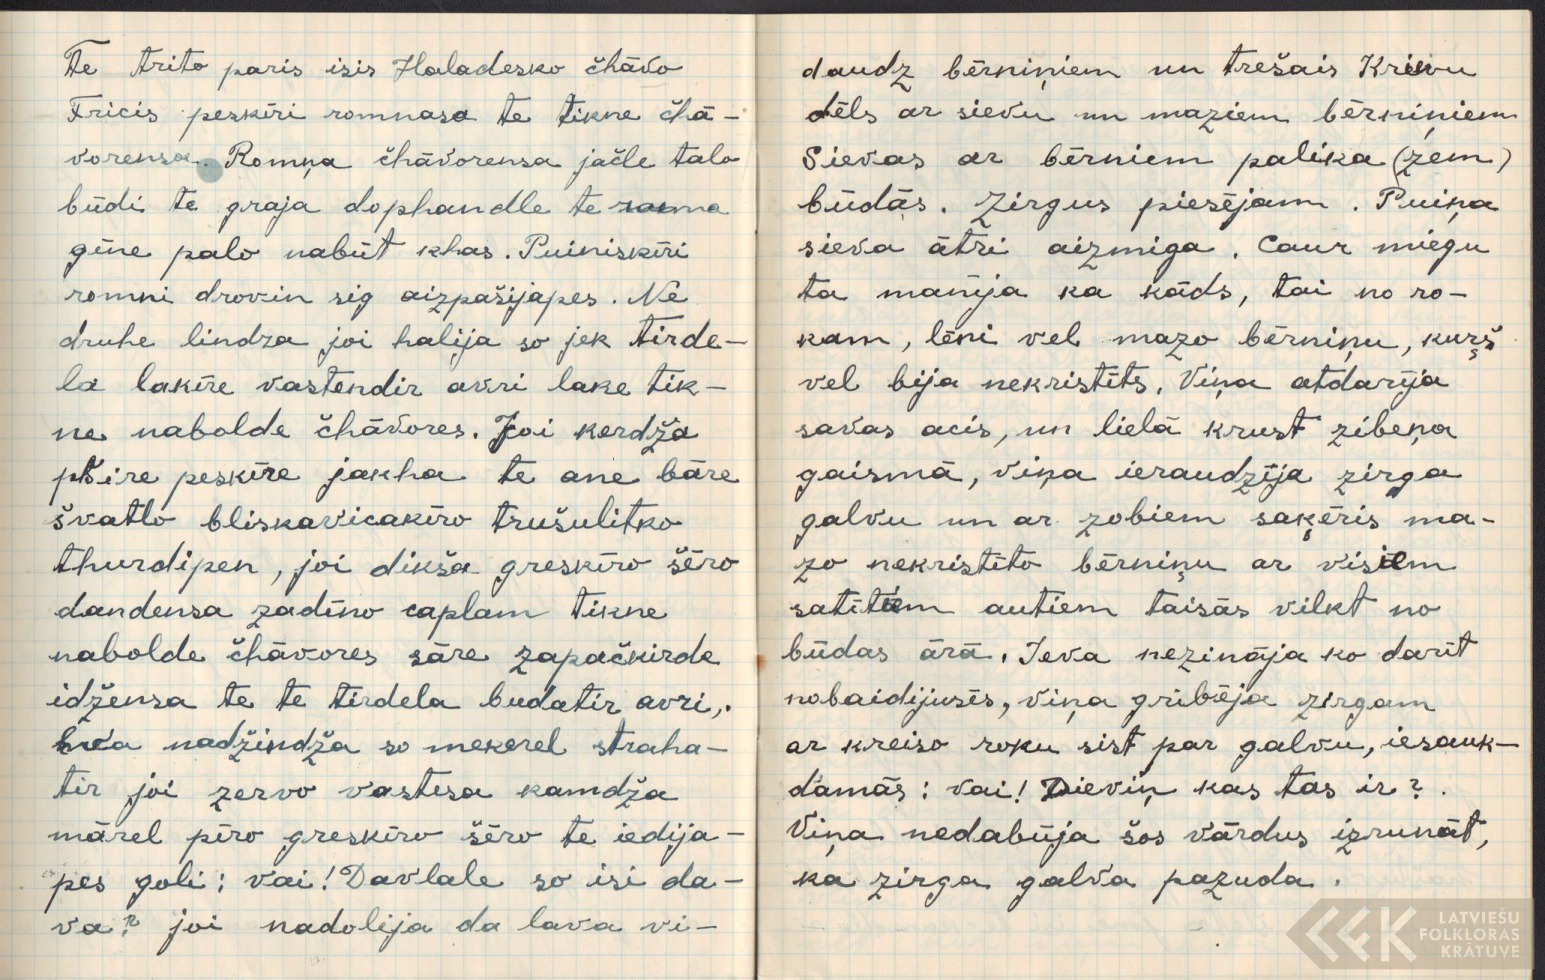 Te trito paris isis Haladesko čhāvo
Fricis peskīri romnasa te tikne čhā-
vorensa. Romņa čhāvorensa jačle talo
būdi te graja dophandle te roma
gēne palo nabūt khas. Puiniskīri
romni drovin sig aizpašijapes. Ne
druhe lindza joi halija so jek tirde-
la lakīre vastendir avri lake tik-
ne nabolde čhāvores. Joi kerdža
pšire peskīre jakha te ane bāre
švatlo bliskavicakīro trušulitko
thurdipen, joi dikša greskīro šēro
dandensa zadīno caplam tikne
nabolde čhāvores sāre zapačkirde
idžensa te te tirdela budatir avri,.
Ieva nadžindža so mekerel straha-
tir joi zervo vastesa kamdža
mārel pīro greskīro šēro te iedija-
pes goli: vai! Davlale so isi da-
va? joi nadolija da lava vi-
daudz bērniņiem un trešais Krievu
dēls ar sievu un maziem bērniņiem
Sievas ar bērniem palika (zem)
būdās. Zirgus piesējam. Puiņa
sieva ātri aizmiga. Caur miegu
ta manīja ka kāds, tai no ro-
kam, lēni vel mazo bērniņu, kuŗš
vel bija nekristīts. Viņa atdarīja
savas acis, un lielā krust zibeņa
gaismā, viņa ieraudzīja zirga
galvu un ar zobiem saķēris ma-
zo nekristīto bērniņu ar visiem
satītiem autiem taisās vilkt no
būdas ārā. Ieva nezināja ko darīt
nobaidijusēs, viņa gribēja zirgam
ar kreiso roku sist par galvu, iesauk-
damās: vai! Dieviņ kas tas ir?.
Viņa nedabūja šos vārdus izrunāt,
ka zirga galva pazuda.
LATVIEŠU
FOLKLORAS
KRĀTUVE